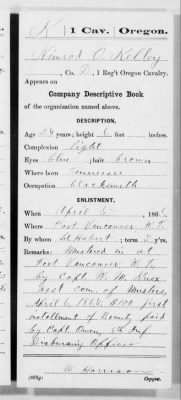 K | 1 Cav. | Oregon.
Nimrod O. Kelley
, Co. D, 1 Reg't Oregon Cavalry.
Appears on
Company Descriptive Book
of the organization named above.
DESCRIPTION.
Age 34 years; height 6 feet inches.
Complexion light
Eyes blue ; hair brown
Where born Tennessee
Occupation blacksmith
ENLISTMENT.
When April 5 , 186
Where Fort Vancouver W.T.
By whom Hobert ; term 3 y'rs.
Remarks: Mustered in at
Fort Vancouver W.T.
by Capt. W. M. Knox
asst com. of Musters,
April 6, 1865. $100 first
installment of Bounty paid
by Capt. Owen, 8th Inf.
Disbursing Officer
Harrison
Copyist.